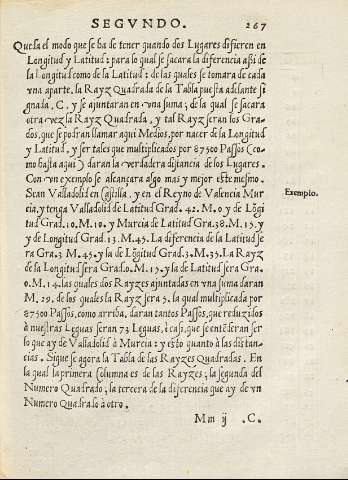 SEGVNDO. 267
Queda el modo que se ha de tener quando dos Lugares difieren en
Longitud y Latitud: para lo qual se sacara la diferencia assi de
la Longitud como de la Latitud: de las quales se tomara de cada
vna aparte, la Rayz Quadrada de la Tabla puesta adelante si
gnada, C. y se ajuntaran en vna suma; de la qual se sacara
otra vez la Rayz Quadrada, y tal Rayz seran los Gra-
dos, que se podran llamar aqui Medios, por nacer de la Longitud
y Latitud, y ser tales que multiplicados por 87500 Passos (co-
mo hasta aqui) daran la verdadera distancia de los Lugares.
Con vn exemplo se alcançara algo mas y mejor esto mesmo.
Sean Valladolid en Castilla, y en el Reyno de Valencia Mur
cia, y tenga Valladolid de Latitud Grad. 42. M.0 y de Lõgi
tud Grad.10.M.10. y Murcia de Latitud Gra.38.M.15. y
y de Longitud Grad. 13. M.45. La diferencia de la Latitud se
ra Gra.3 M.45. y la de Lõgitud Grad.3.M.35. La Rayz
de la Longitud sera Grad.0. M.15. y la de Latitud sera Gra.
0. M.14. las quales dos Rayzes ajuntadas en vna suma daran
M. 29. de los quales la Rayz sera 5. la qual multiplicada por
87500 Passos, como arriba, daran tantos Passos, que reduzidos
à nuestras Leguas seran 73 Leguas, ò casi, que se entēderan ser
lo que ay de Valladolid à Murcia: y esto quanto à las distan-
cias. Sigue se agora la Tabla de las Rayzes Quadradas. En
la qual la primera Columna es de las Rayzes; la segunda del
Numero Quadrado; la tercera de la diferencia que ay de vn
Numero Quadrado à otro.
Exemplo.
Mm ij .C.